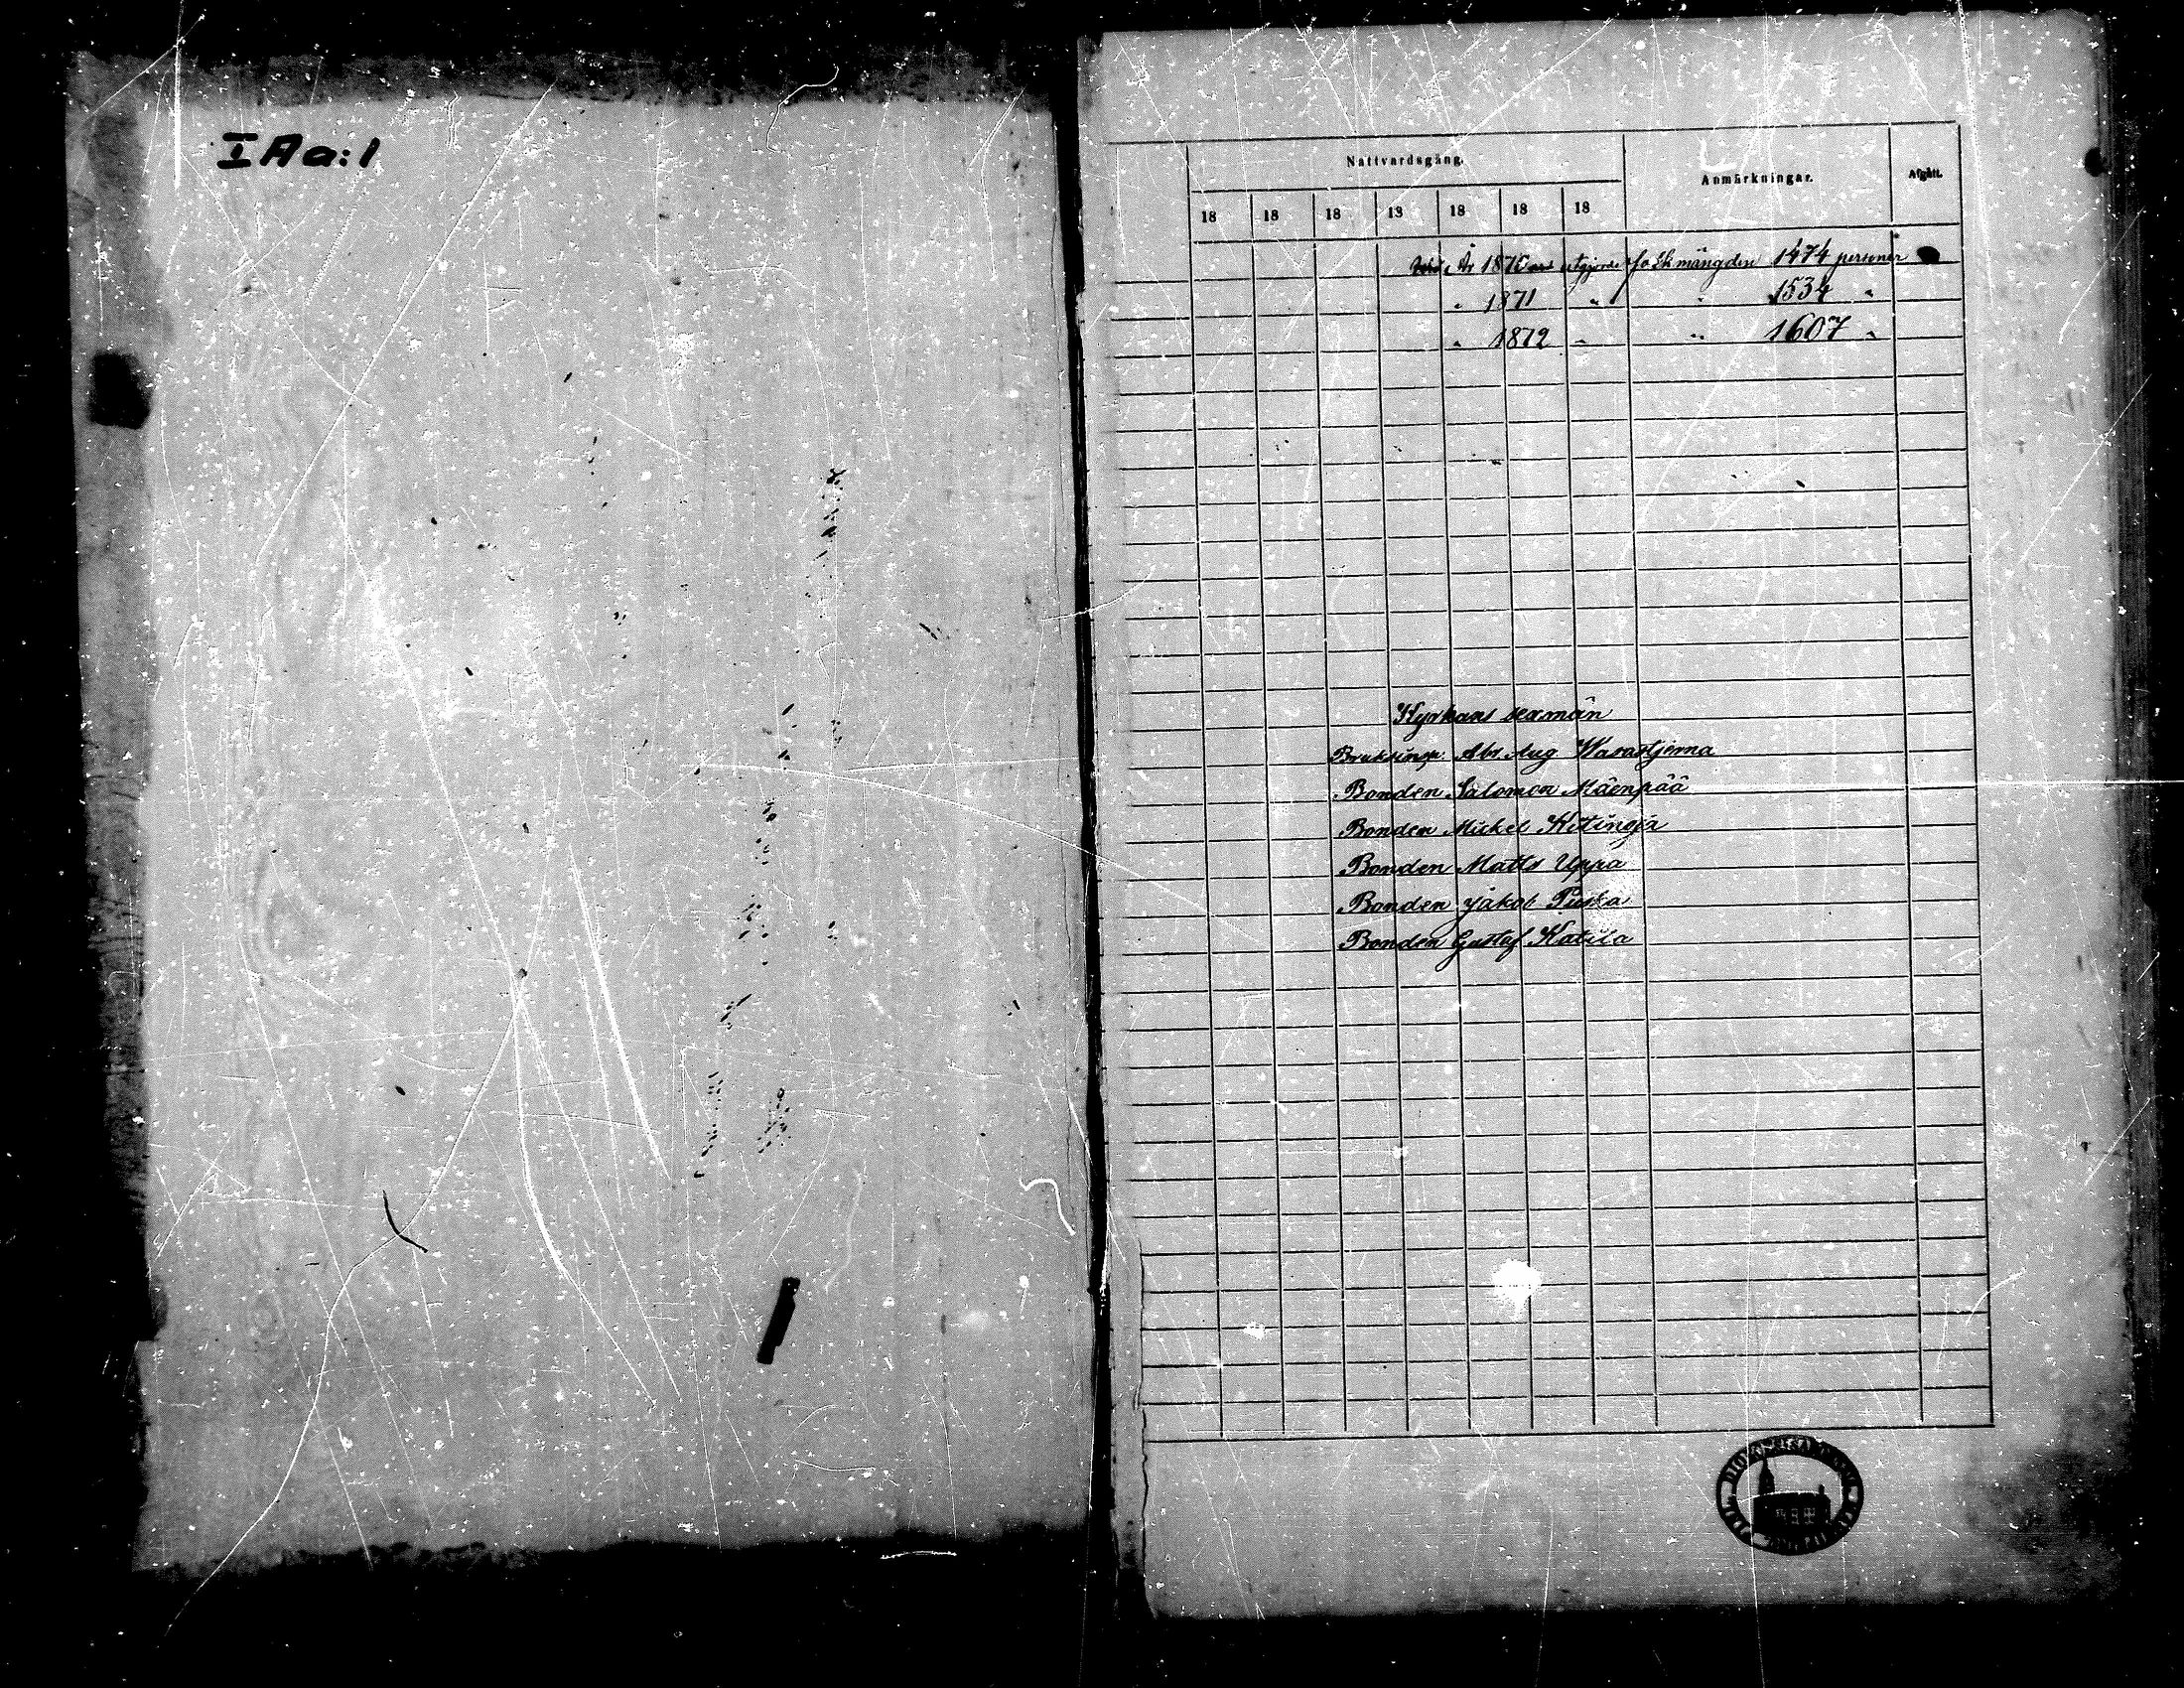 I A a:1
Nattvardsgång.
Anmärkningar.
Afgått.
18 18 18 18 18 18 18
År 1870 utgjorde folkmängden 1474 personer
" 1871 " " 1534 "
" 1872 " " 1607 "
Kyrkans sexmän
Bruksinsp. Abr. Aug Wasastjerna
Bonden Salomon Mäenpää
Bonden Mickel Hitingoja
Bonden Matts Uppa
Bonden Jakob Puska
Bonden Gustaf Katila